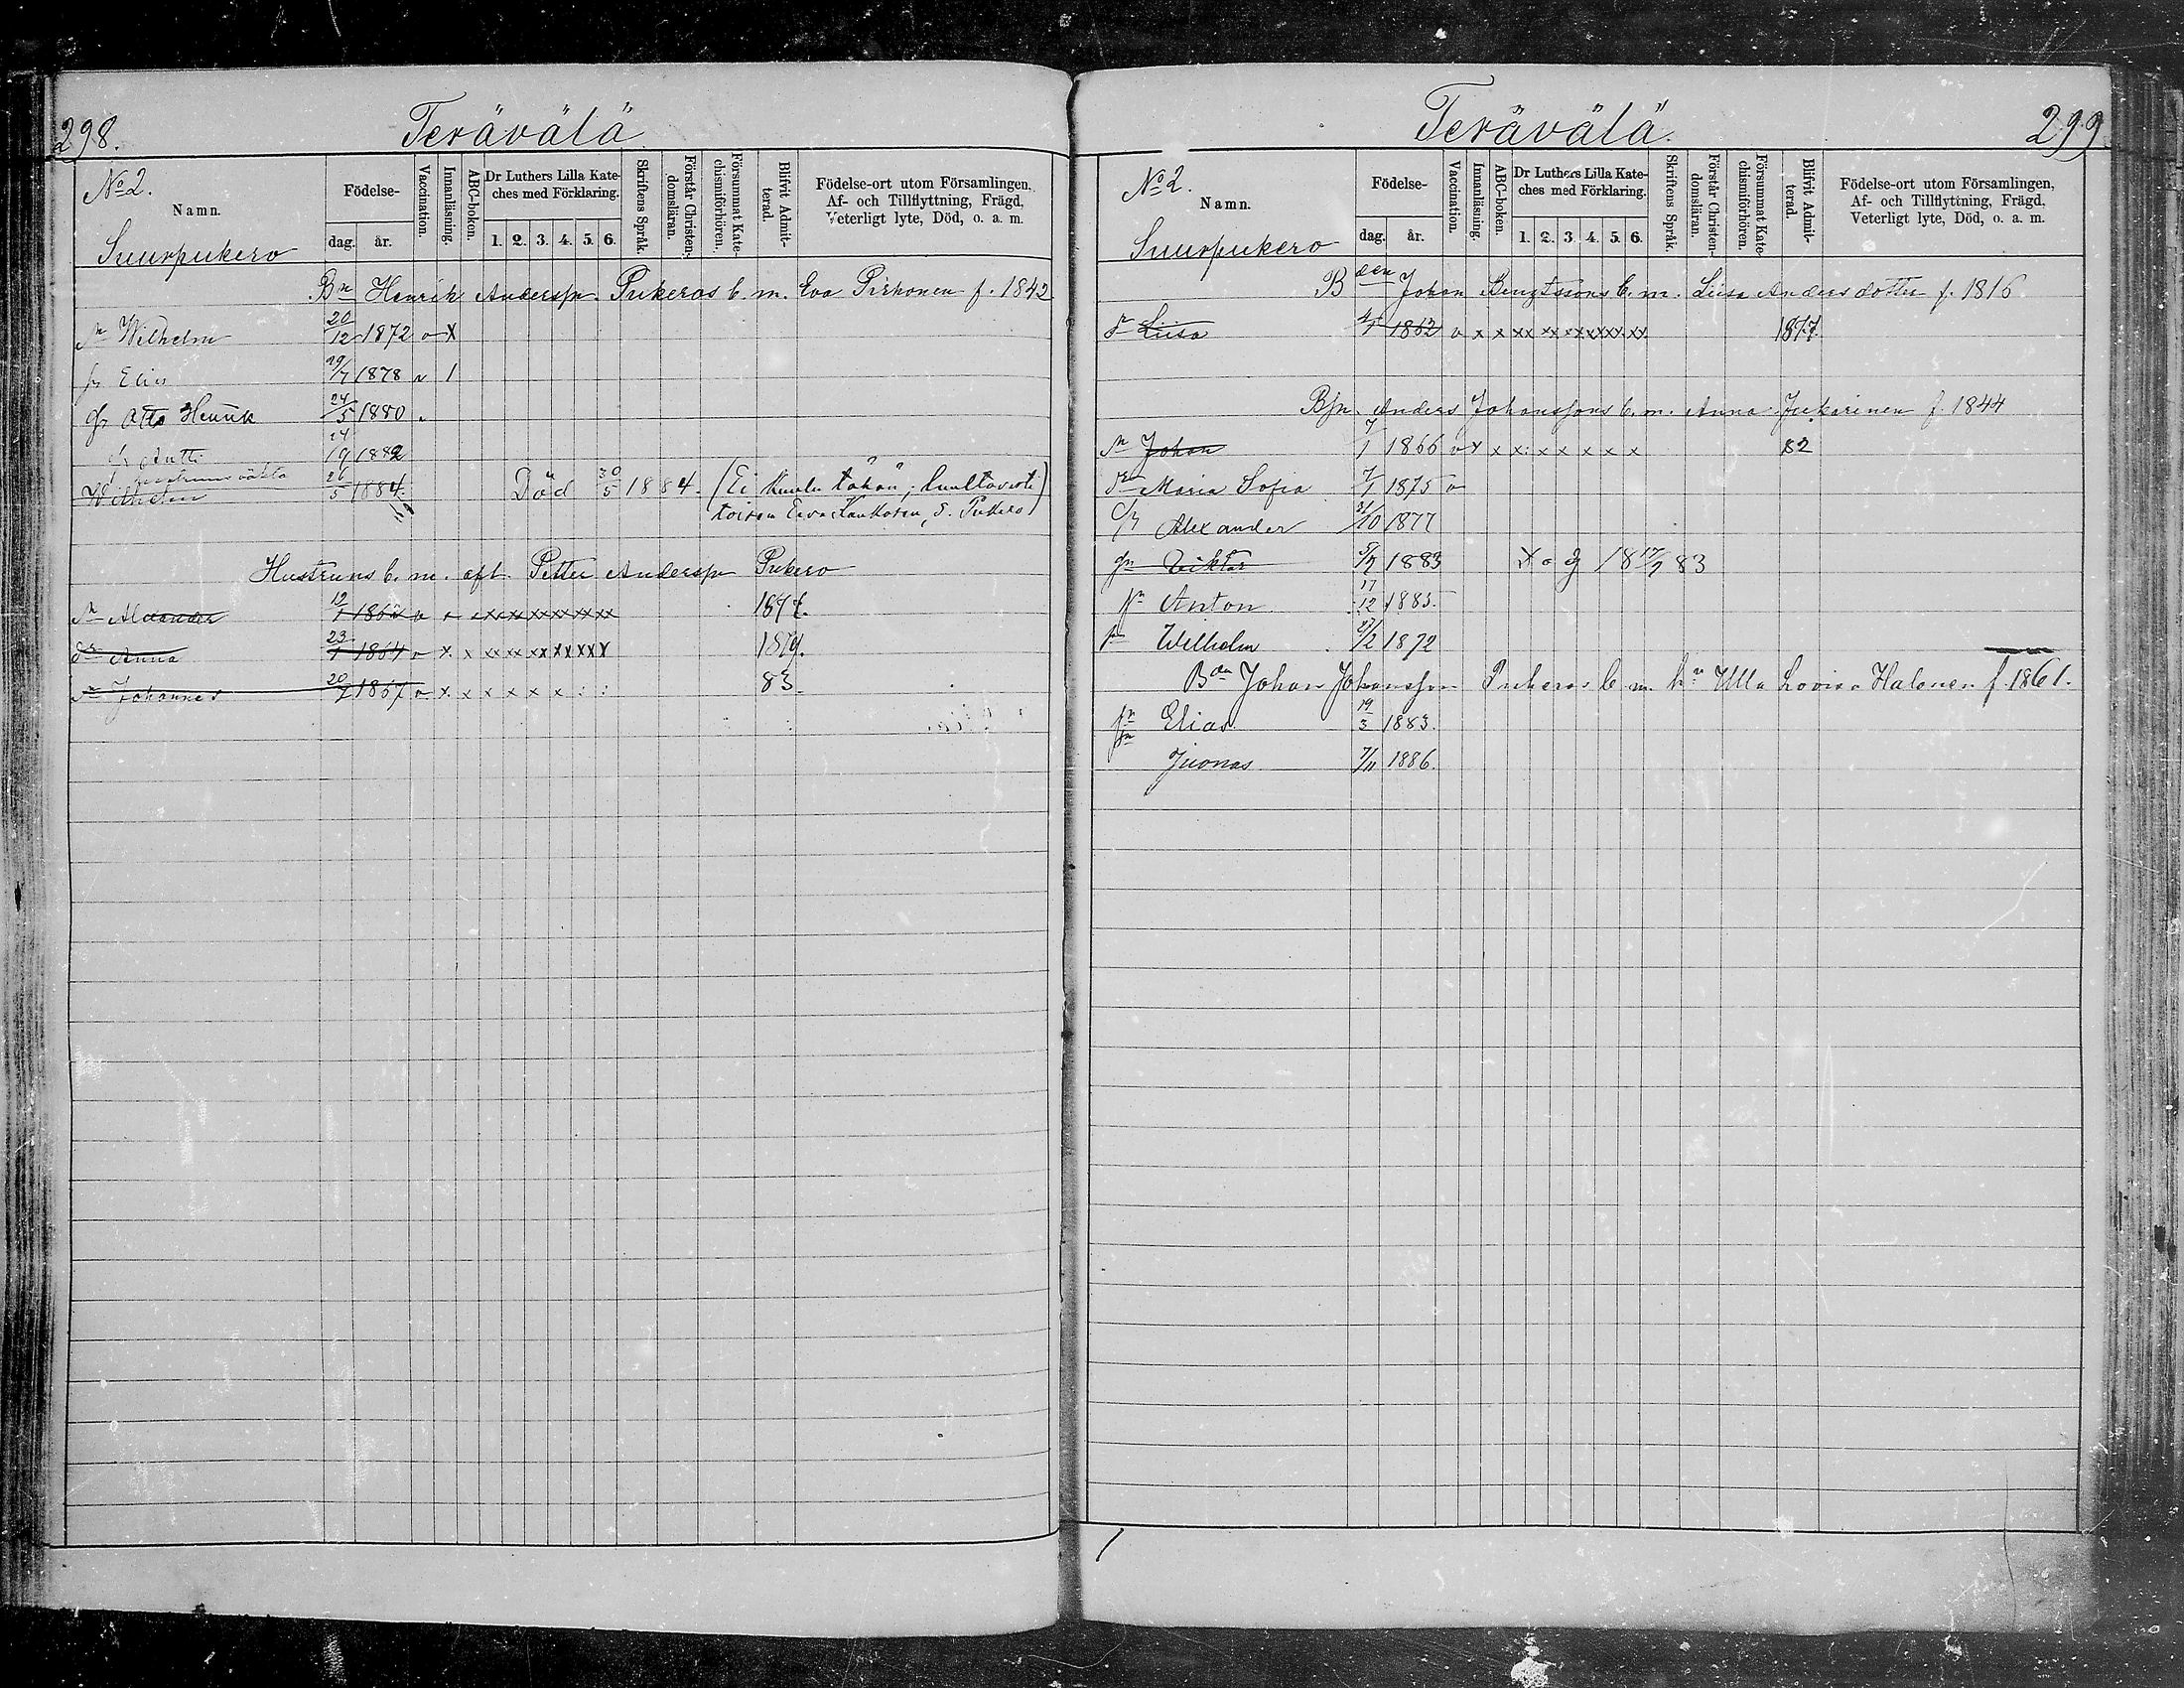 298.
Terävälä
No 2.
Namn.
Suurpukero
Födelse-
dag.
år.
Vaccination.
Innanläsning.
ABC-boken.
Dr Luthers Lilla Kate-
ches med Förklaring.
1. 2. 3. 4. 5. 6.
Skriftens Språk.
Förstår Christen-
domsläran.
Försummat Kate-
chismiförhören.
Blifvit Admit-
terad.
Födelse-ort utom Församlingen,
Af- och Tillflyttning, Frägd,
Veterligt lyte, Död, o. a. m.
Bn Henrik Anderssn Pukeros b. m. Eva Pirhonen f. 1842
sn Wilhelm 20/12 1872 v X
sn Elias 19/7 1878 v 1
sn Otto Henrik 24/5 1880
sn Antti 24/9 1882
Wilhelm 26/5 1884. Död 30/5 1884. (Ei kuulu tähän;
toisen Eeva S. Pukero)
Hustruns b. m. aft. Petter Anderssn Pukero
sn Alexander 12/1 1862 v x x x x x x x x x x x 1877.
dr Anna 23/1 1864 v x x xx xx xx xx xx xx 1879.
sn Johannes 20/7 1867 v x x x x x x : : 83.
Terävälä.
299
No 2.
Namn.
Suurpukero
Födelse-
dag.
år.
Vaccination.
Innanläsning.
ABC-boken.
Dr Luthers Lilla Kate-
ches med Förklaring.
1. 2. 3. 4. 5. 6.
Skriftens Språk.
Förstår Christen-
domsläran.
Försummat Kate-
chismiförhören.
Blifvit Admit-
terad.
Födelse-ort utom Församlingen,
Af- och Tillflyttning, Frägd,
Veterligt lyte, Död, o. a. m.
Bden Johan Bengtssons b. m. Liisa Andersdotter f. 1816
dr Liisa 1862 v x x xx xx xx xx xx xx 1877.
Bsn. Anders Johanssons b. m. Anna Jukarinen f. 1844
sn Johan 7/1 1866 v x x x: x x x x x 82
dr Maria Sofia 7/1 1875 v
sn Alexander 31/10 1877
sn Viktor 5/7 1883 18 17/7 83
sn Anton 17/12 1885.
sn Wilhelm 27/2 1872
Bden Johan Johansson Pukeros b. m. hu Ulla Lovisa Halonen f. 1861.
sn Elias 19/3 1883.
sn
Juonas 7/11 1886.